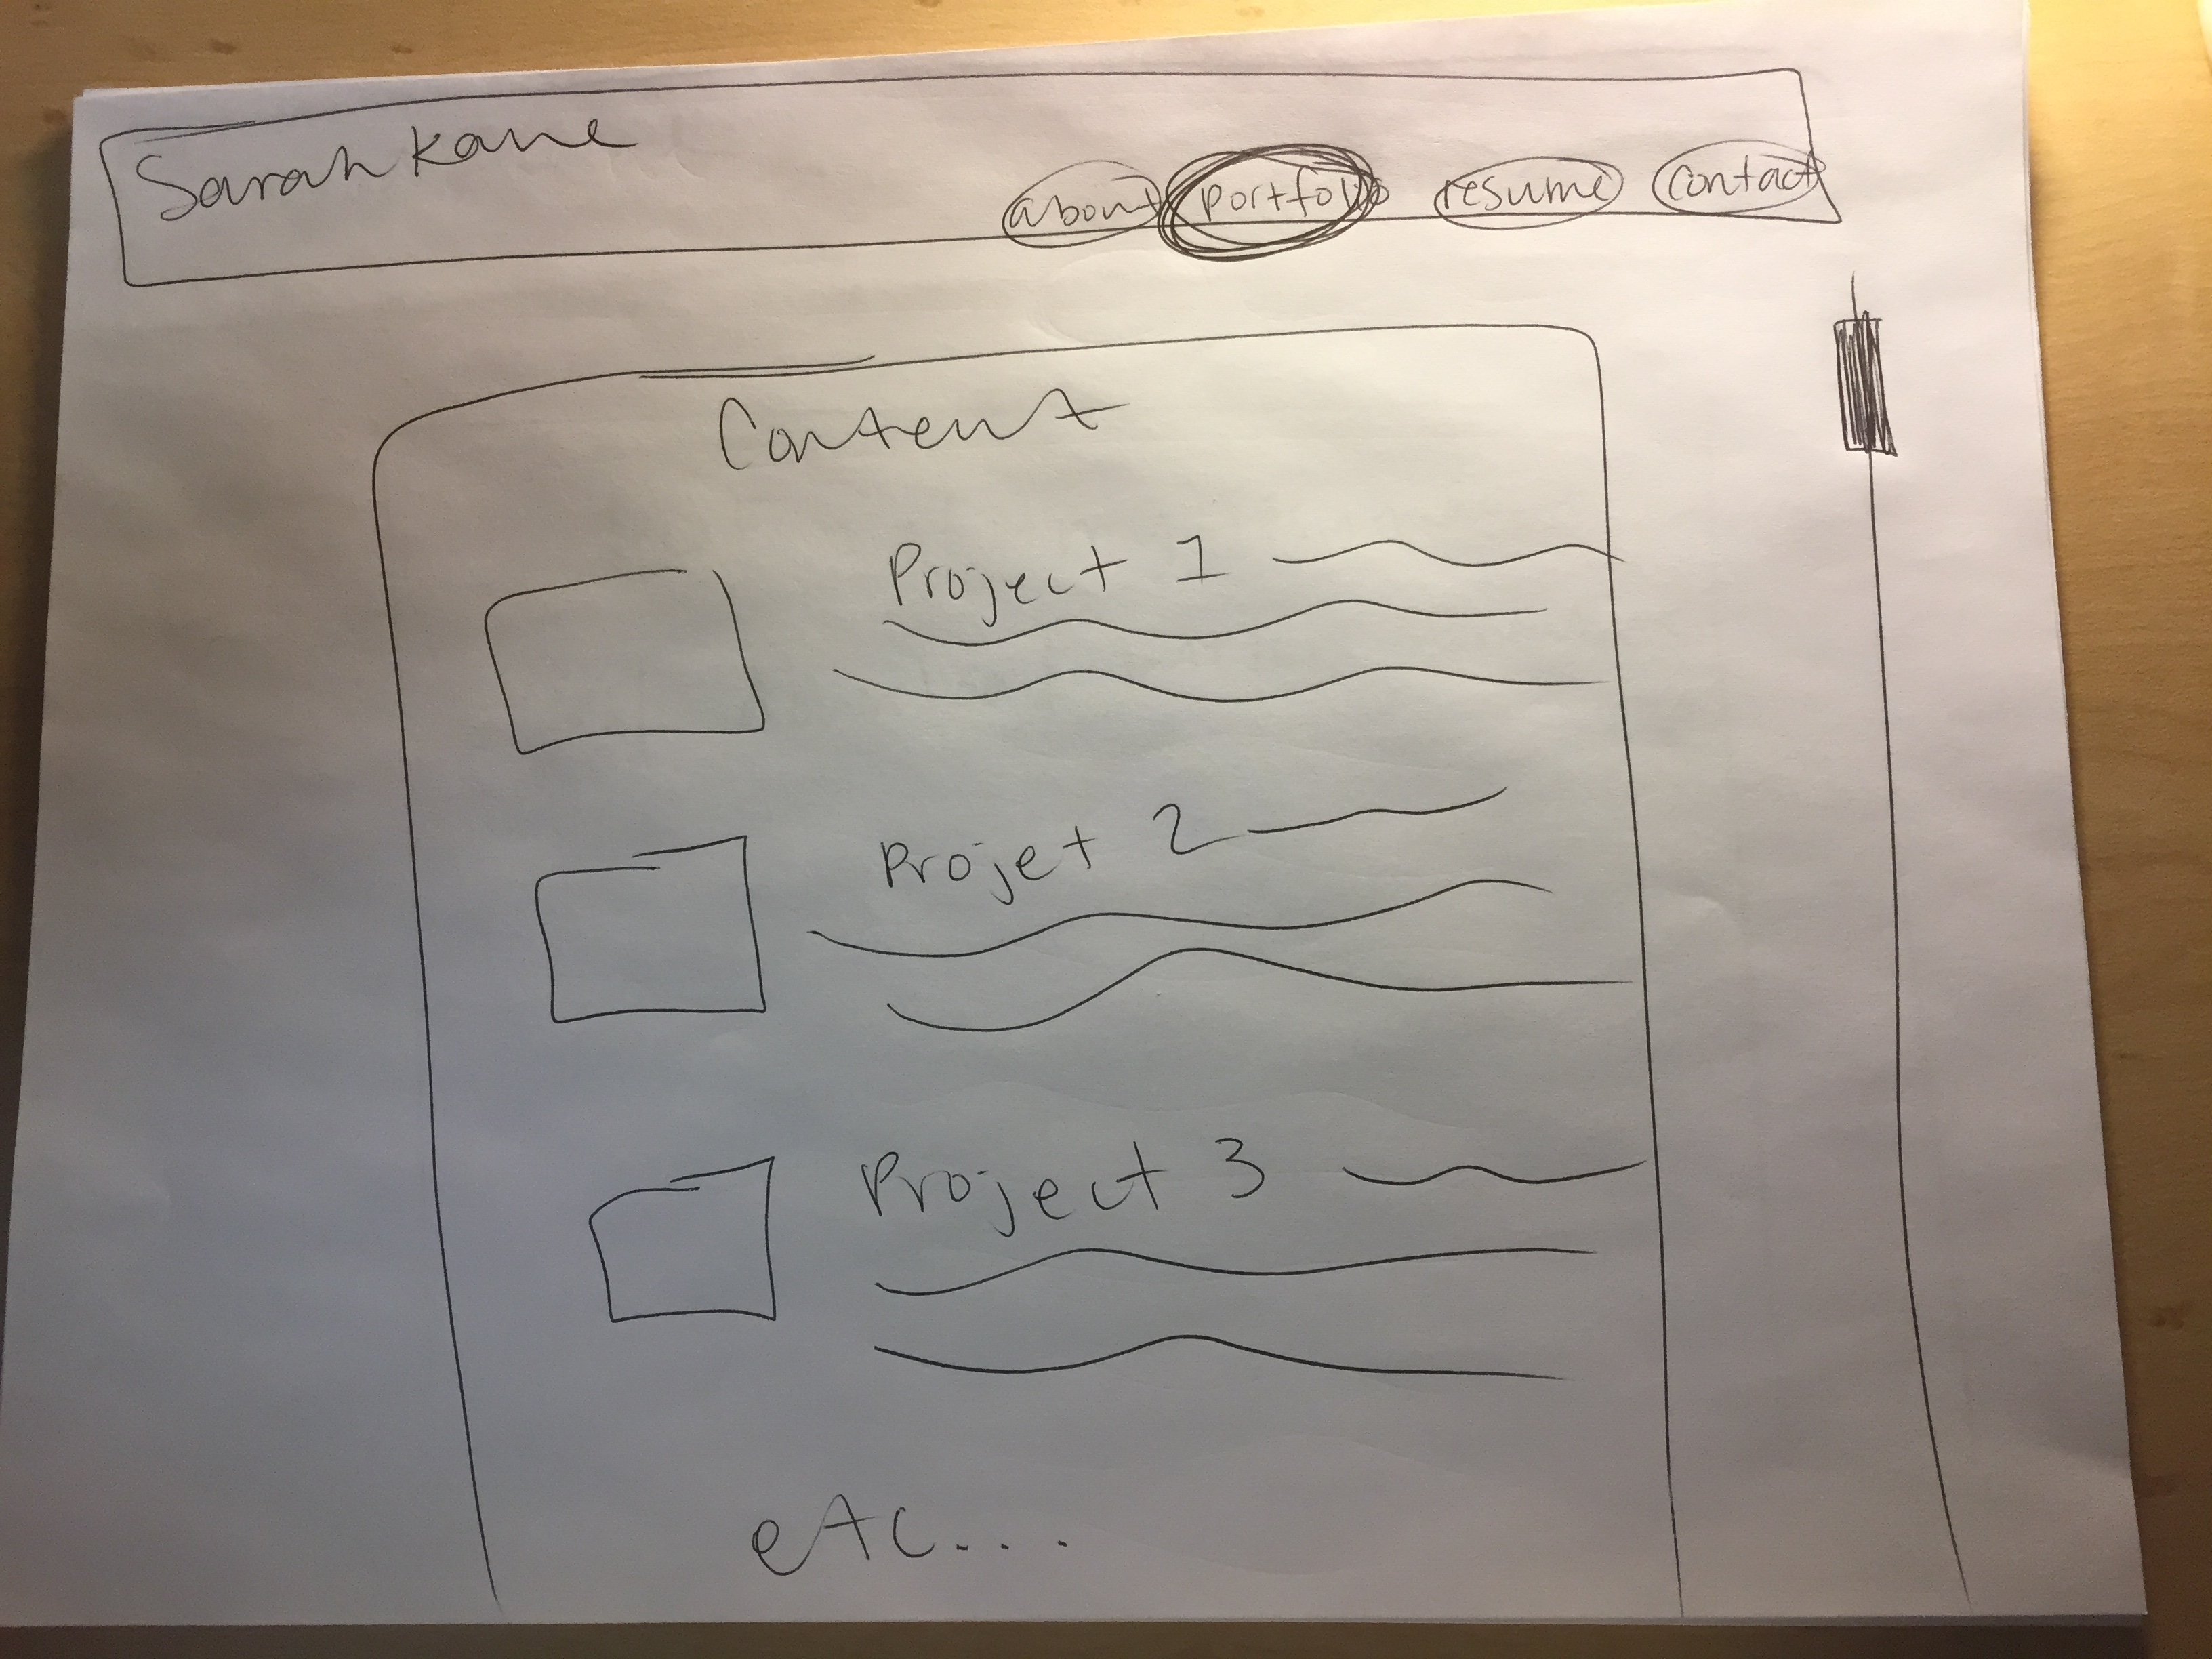 Sarah Kane
about portfolio resume contact
Content
Project 1
Projet 2
Project 3
etc....